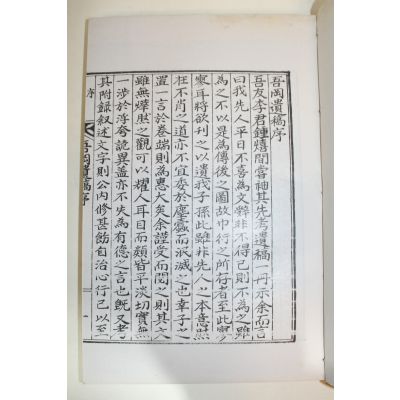 吾岡遺稿序
吾友李君鍾熺間嘗袖其先考遺稿一冊示余而言
曰我先人平日不喜為文辭非不得已則不為之雖
為之不以是為傳後之圖故巾衍之所存者至此寥
寥耳將欲刊之以遺我子孫此雖非先人之本意然
在不肖之道亦不宜委於塵蠹而泯滅之也幸子之
置一言於卷端則為惠大矣余謹受而閱之則其文
雖無燁然之觀可以耀人耳目而類皆平淡切實無
一涉於浮夸詭異蓋亦不失為有德之言也旣又考
其附錄叙述文字則公內修甚飭自治心行己以至
序
吾岡遺稿序
一